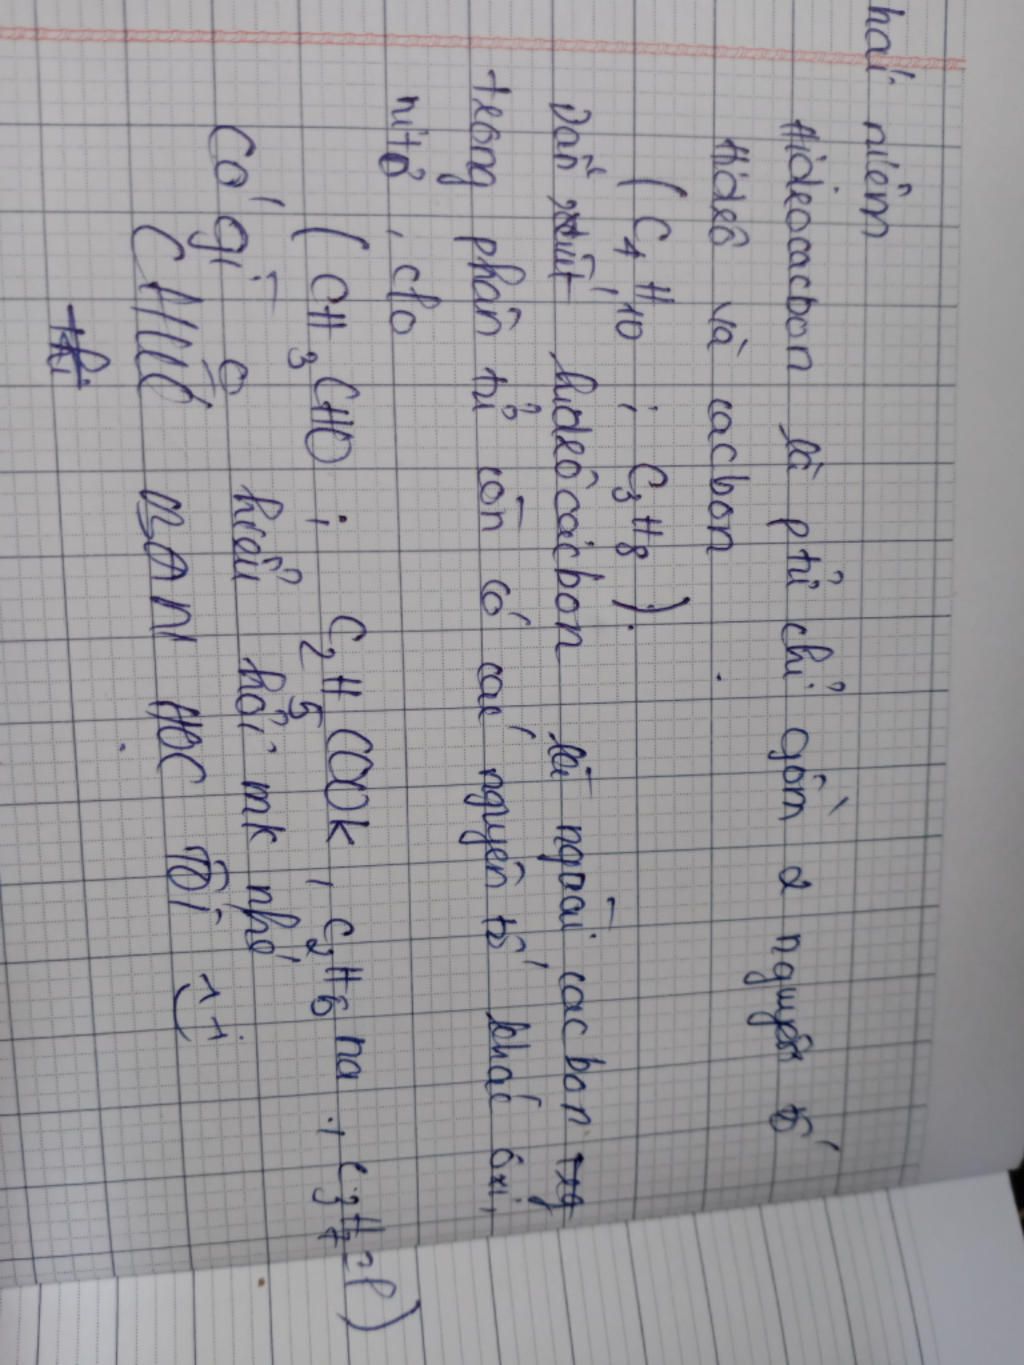 hái niêm
Hiđrocacbon là ptử chỉ gồm 2 nguyên tố
Hiđrô và cacbon
( C4H10 ; C3H8 ).
Dẫn xuất hiđrôcácbon là ngoài cacbon
trong phân tử còn có các nguyên tố khác ôxi,
nitơ , clo
( CH3CHO ; C2H5COOK , C2H6 na , C3H7 )
Có gì o hiểu hỏi mk nhé
CHÚC BẠN HỌC TỐI